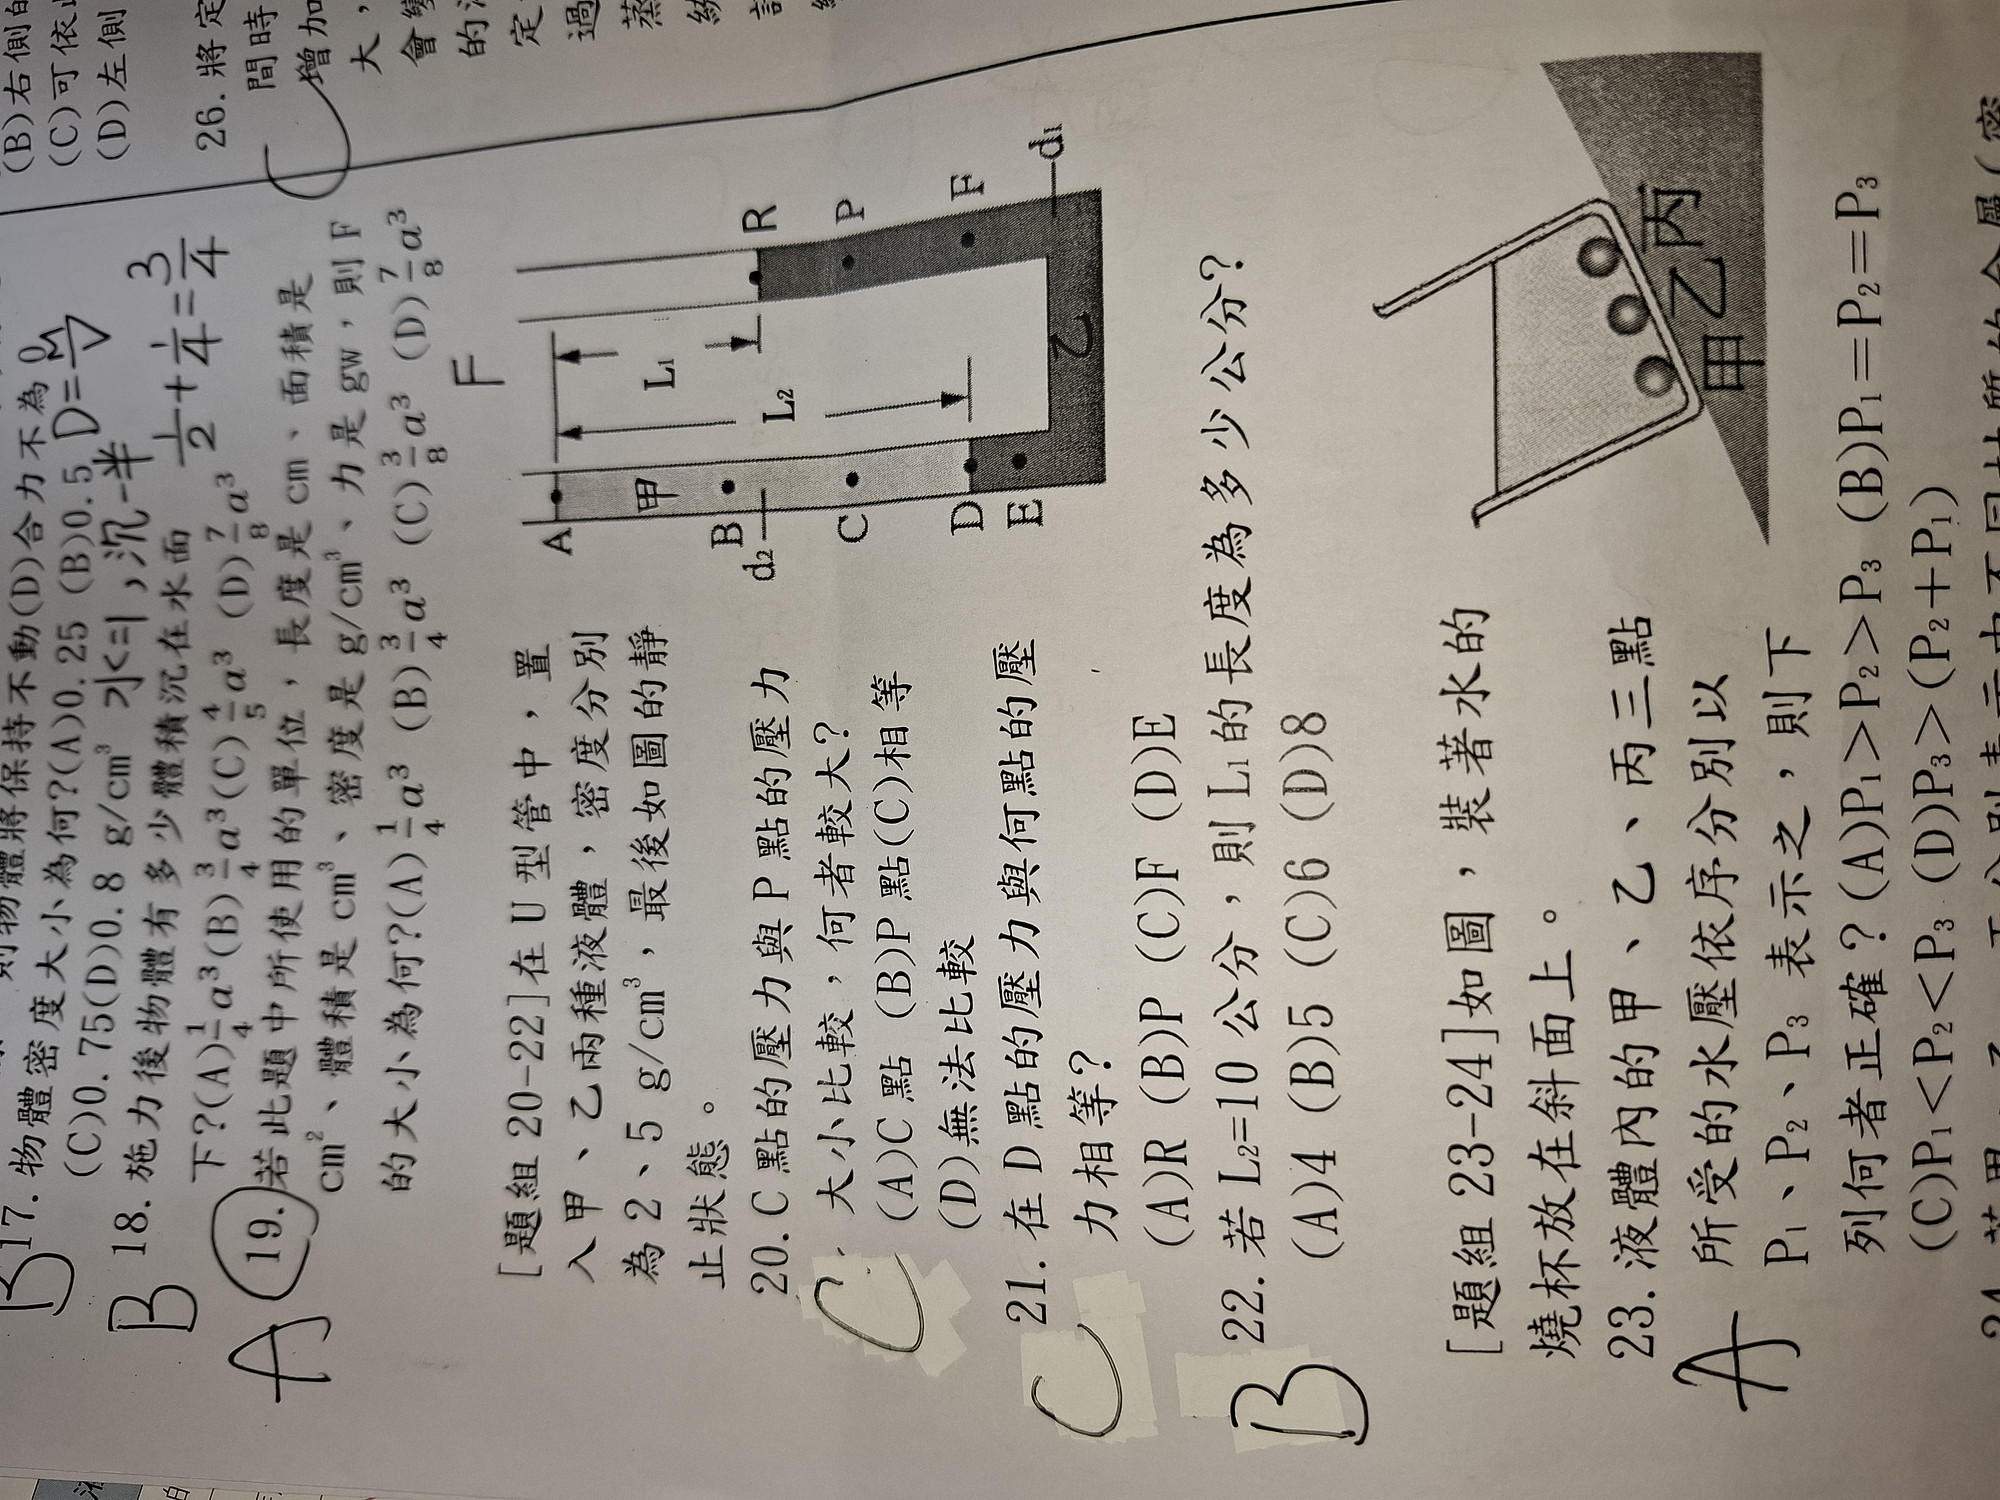 則物體將保持不動(D)合力不為 0
B 17. 物體密度大小為何?(A)0.25 (B)0.5 D=M/V
(C)0.75(D)0.8 g/cm³ 水<=1,沉一半
B 18. 施力後物體有多少體積沉在水面 1/2+1/4=3/4
下?(A)1/4a³(B)3/4a³(C)4/5a³ (D)7/8a³
A 19. 若此題中所使用的單位,長度是 cm、面積是
cm²、體積是 cm³、密度是 g/cm³、力是 gw,則 F
的大小為何?(A)1/4a³ (B)3/4a³ (C)3/8a³ (D)7/8a³
F
[題組 20-22]在 U 型管中,置
入甲、乙兩種液體,密度分別
為 2、5 g/cm³,最後如圖的靜
止狀態。
C 20. C 點的壓力與 P 點的壓力
大小比較,何者較大?
(A)C 點 (B)P 點(C)相等
(D)無法比較
C 21. 在 D 點的壓力與何點的壓
力相等?
(A)R (B)P (C)F (D)E
B 22. 若 L₂=10 公分,則 L₁的長度為多少公分?
(A)4 (B)5 (C)6 (D)8
A
甲
B
d₂
C
D
E
L₁
L₂
R
P
F
d₁
乙
[題組 23-24]如圖,裝著水的
燒杯放在斜面上。
A 23. 液體內的甲、乙、丙三點
所受的水壓依序分別以
P₁、P₂、P₃ 表示之,則下
列何者正確?(A)P₁>P₂>P₃ (B)P₁=P₂=P₃
(C)P₁<P₂<P₃ (D)P₃>(P₂+P₁)
甲乙丙
(B)右側的
(C)可依
(D)左側
C 26. 將定
間時
增加
大,
會變
的
定
過
蒸